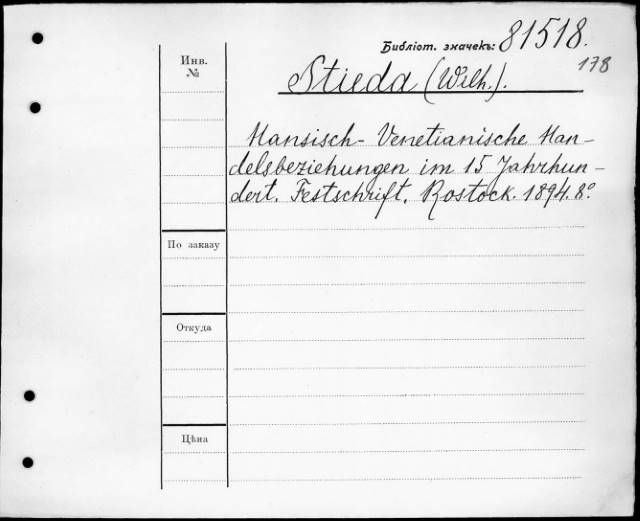 Библіот. значекъ: 81518.
178
Инв.
№
Stieda (Wilh.).
Hansisch-Venetianische Han-
delsbeziehungen im 15 Jahrhun-
dert. Festschrift. Rostock. 1894. 8°.
По заказу
Откуда
Цѣна